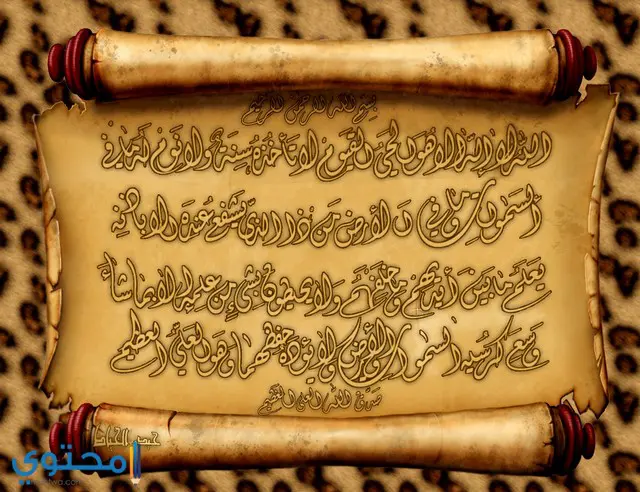 بسم الله الرحمن الرحيم
الله لا اله الا هو الحي القيوم لا تأخذه سنة ولا نوم له ما في
السموات وما في الأرض من ذا الذي يشفع عنده الا باذنه
يعلم ما بين أيديهم وما خلفهم ولا يحيطون بشئ من علمه الا بما شاء
وسع كرسيه السموات والأرض ولا يؤوده حفظهما وهو العلي العظيم
صدق الله العلي العظيم
محتوي